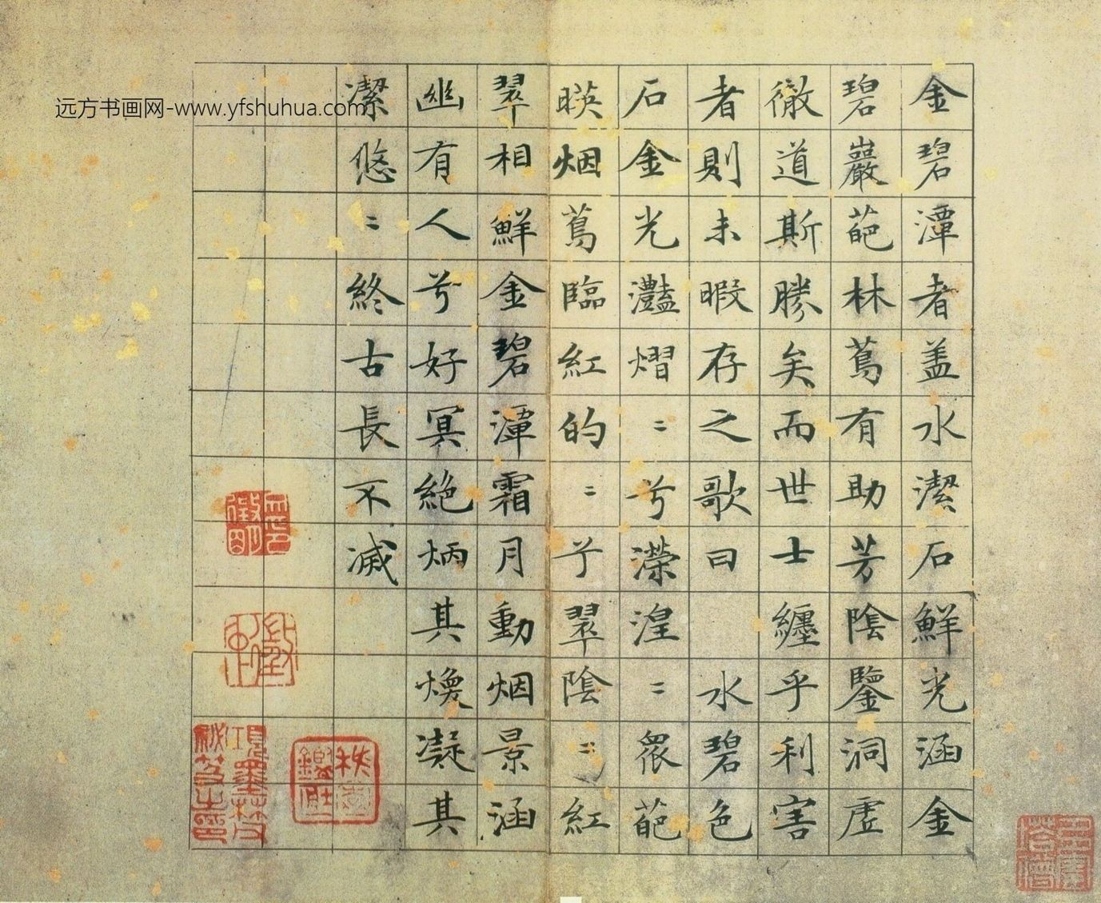 金碧潭者蓋水潔石鮮光涵金
碧巖葩林蔦有助芳陰鑒洞虛
徹道斯勝矣而世士纏乎利害
者則未暇存之歌曰 水碧色
石金光灩熠〻兮濴湟〻眾葩
暎烟蔦臨紅的〻兮翠陰〻紅
翠相鮮金碧潭霜月動烟景涵
幽有人兮好冥絕炳其煥凝其
潔悠〻終古長不滅
远方书画网-www.yfshuhua.com